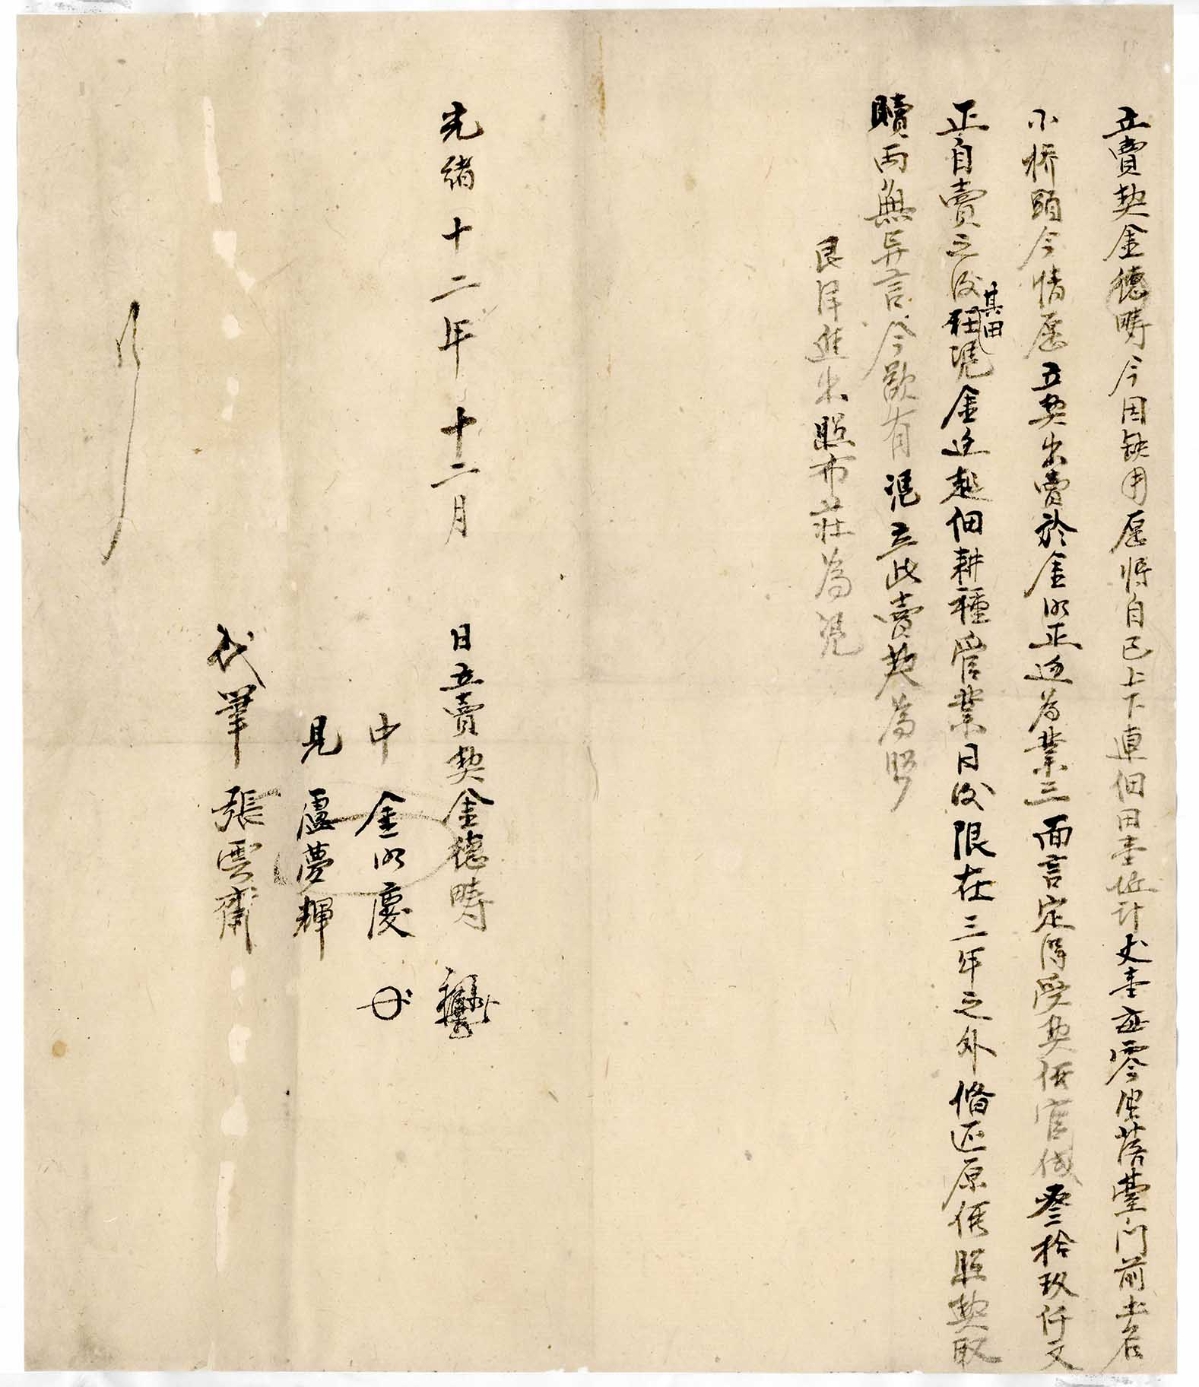 立賣契金德時今因缺用愿將自己上下連佃田壹坵計丈壹畝零坐落臺門前土名
小橋頭今情愿立契出賣於金以正边為業三面言定得受契價官錢叁拾玖仟文
正自賣之後其田任凭金边起佃耕種管業日後限在三年之外備還原價照契取
贖兩無异言今欲有凭立此賣契為照
艮洋進出照市莊為凭
光緒十二年十二月 日立賣契金德時
中 金以慶
見 盧夢輝
代筆 張雲齋